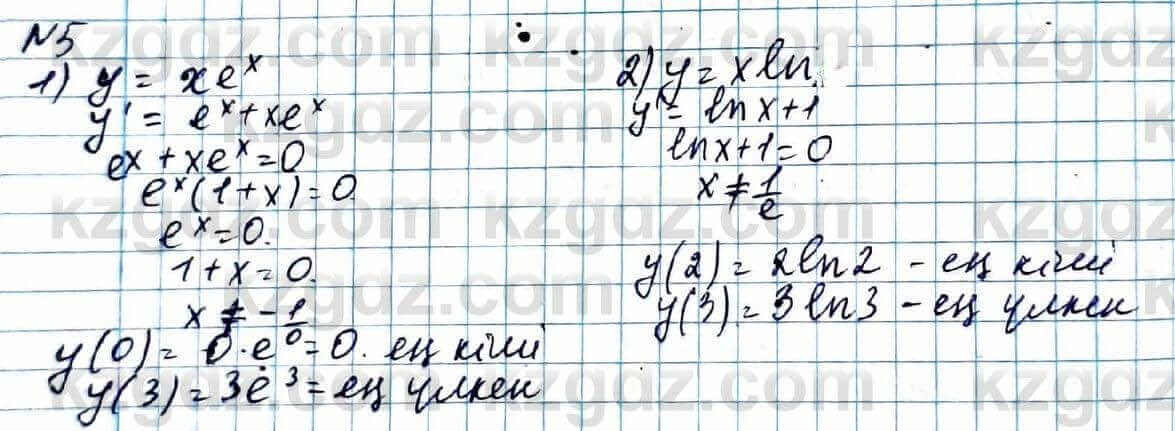 N5
1) y = xe^x
y' = e^x + xe^x
ex + xe^x = 0
e^x(1+x) = 0.
e^x = 0.
1 + x = 0.
x ≠ -1
y(0) = 0·e^0 = 0. ең кіші
y(3) = 3e^3 = ең үлкен
2) y = x ln
y' = ln x + 1
ln x + 1 = 0
x ≠ 1/e
y(2) = 2ln2 - ең кіші
y(3) = 3ln3 - ең үлкен
kzgdz.com